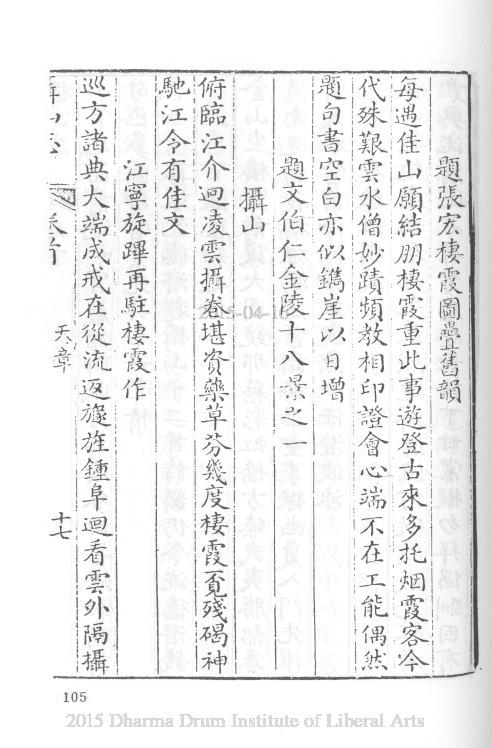 題張宏棲霞圖疊舊韻
每遇佳山願結朋棲霞重此事遊登古來多托烟霞客今
代殊艱雲水僧妙蹟頻教相印證會心端不在工能偶然
題句書空白亦似鐫崖以日增
題文伯仁金陵十八景之一
攝山
俯臨江介迥凌雲攝卷堪資藥草芬幾度棲霞覓殘碣神
馳江令有佳文
江寧旋蹕再駐棲霞作
巡方諸典大端成戒在從流返旟旌鍾阜迴看雲外隔攝
山志
卷首
天章
十七
105
2015 Dharma Drum Institute of Liberal Arts